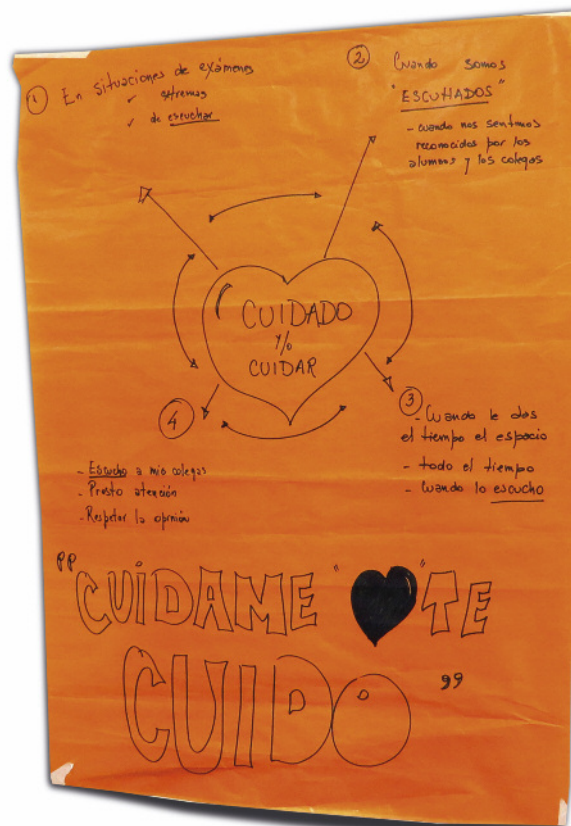 ① En situaciones de exámenes
✓ extremas
✓ de escuchar
② Cuando somos
"ESCUHADOS"
- cuando nos sentimos
reconocidos por los
alumnos y los colegas
CUIDADO
y/o
CUIDAR
③ - Cuando le das
el tiempo el espacio
- todo el tiempo
- Cuando lo escucho
④
- Escucho a mis colegas
- Presto atención
- Respetar la opinión
"CUIDAME "♥" TE
CUIDO"